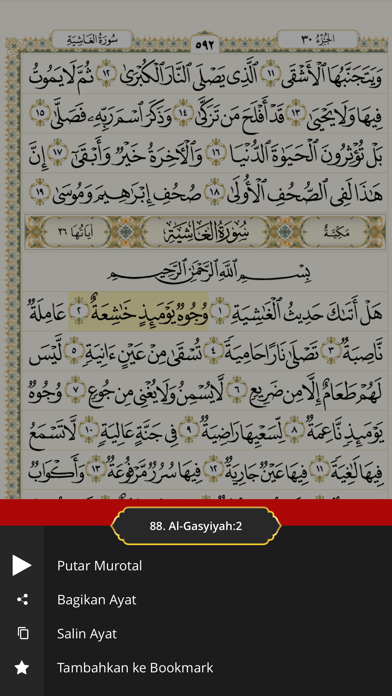 سُورَةُ الغَاشِيَةِ ٥٩٢ الجُزْءُ ٣٠
وَيَتَجَنَّبُهَا ٱلْأَشْقَى ١١ ٱلَّذِى يَصْلَى ٱلنَّارَ ٱلْكُبْرَىٰ ١٢ ثُمَّ لَا يَمُوتُ
فِيهَا وَلَا يَحْيَىٰ ١٣ قَدْ أَفْلَحَ مَن تَزَكَّىٰ ١٤ وَذَكَرَ ٱسْمَ رَبِّهِۦ فَصَلَّىٰ ١٥
بَلْ تُؤْثِرُونَ ٱلْحَيَوٰةَ ٱلدُّنْيَا ١٦ وَٱلْءَاخِرَةُ خَيْرٌ وَأَبْقَىٰٓ ١٧ إِنَّ
هَٰذَا لَفِى ٱلصُّحُفِ ٱلْأُولَىٰ ١٨ صُحُفِ إِبْرَٰهِيمَ وَمُوسَىٰ ١٩
مَكِيَّةٌ سُورَةُ الغَاشِيَةِ آيَاتُهَا ٢٦
بِسْمِ ٱللَّهِ ٱلرَّحْمَٰنِ ٱلرَّحِيمِ
هَلْ أَتَىٰكَ حَدِيثُ ٱلْغَٰشِيَةِ ١ وُجُوهٌ يَوْمَئِذٍ خَٰشِعَةٌ ٢ عَامِلَةٌ
نَّاصِبَةٌ ٣ تَصْلَىٰ نَارًا حَامِيَةً ٤ تُسْقَىٰ مِنْ عَيْنٍ ءَانِيَةٍ ٥ لَّيْسَ
لَهُمْ طَعَامٌ إِلَّا مِن ضَرِيعٍ ٦ لَّا يُسْمِنُ وَلَا يُغْنِى مِن جُوعٍ ٧ وُجُوهٌ
يَوْمَئِذٍ نَّاعِمَةٌ ٨ لِّسَعْيِهَا رَاضِيَةٌ ٩ فِى جَنَّةٍ عَالِيَةٍ ١٠ لَّا تَسْمَعُ
فِيهَا لَٰغِيَةً ١١ فِيهَا عَيْنٌ جَارِيَةٌ ١٢ فِيهَا سُرُرٌ مَّرْفُوعَةٌ ١٣ وَأَكْوَابٌ
88. Al-Gasyiyah:2
Putar Murotal
Bagikan Ayat
Salin Ayat
Tambahkan ke Bookmark